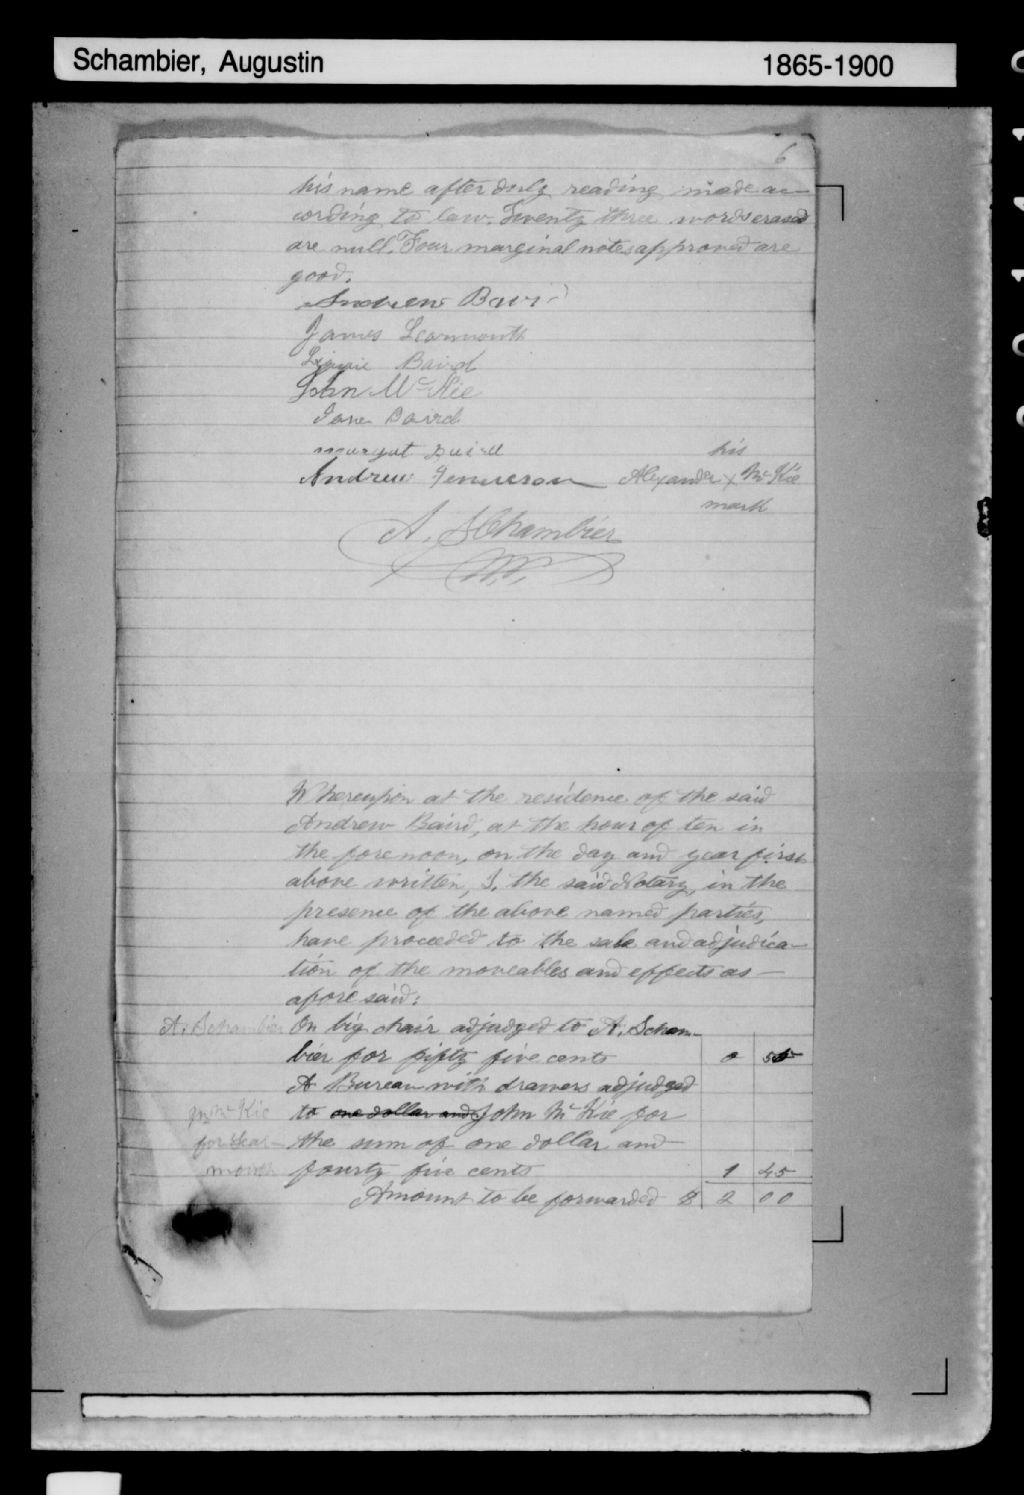 Schambier, Augustin 1865-1900
6
his name after duly reading made ac-
cording to law. Seventy three words erased
are null. Four marginal notes approved are
good.
Andrew Baird
James Learmonth
Lizzie Baird
John Mc Kie
Jane Baird
margat Baird
his
Andrew Alexander x Mc Kie
mark
A. Schambier
N.P.
Whereupon at the residence of the said
Andrew Baird, at the hour of ten in
the forenoon, on the day and year first
above written, I, the said Notary, in the
presence of the above named parties,
have proceeded to the sale and adjudica-
tion of the moveables and effects as-
afore said:
A. Schambier On big chair adjudged to A. Scham-
bier for fifty five cents 0 55
A Bureau with drawers adjudged
Mc Kie to one dollar and John Mc Kie for
for Lear- the sum of one dollar and
month fourty five cents 1 45
Amount to be forwarded $ 2 00